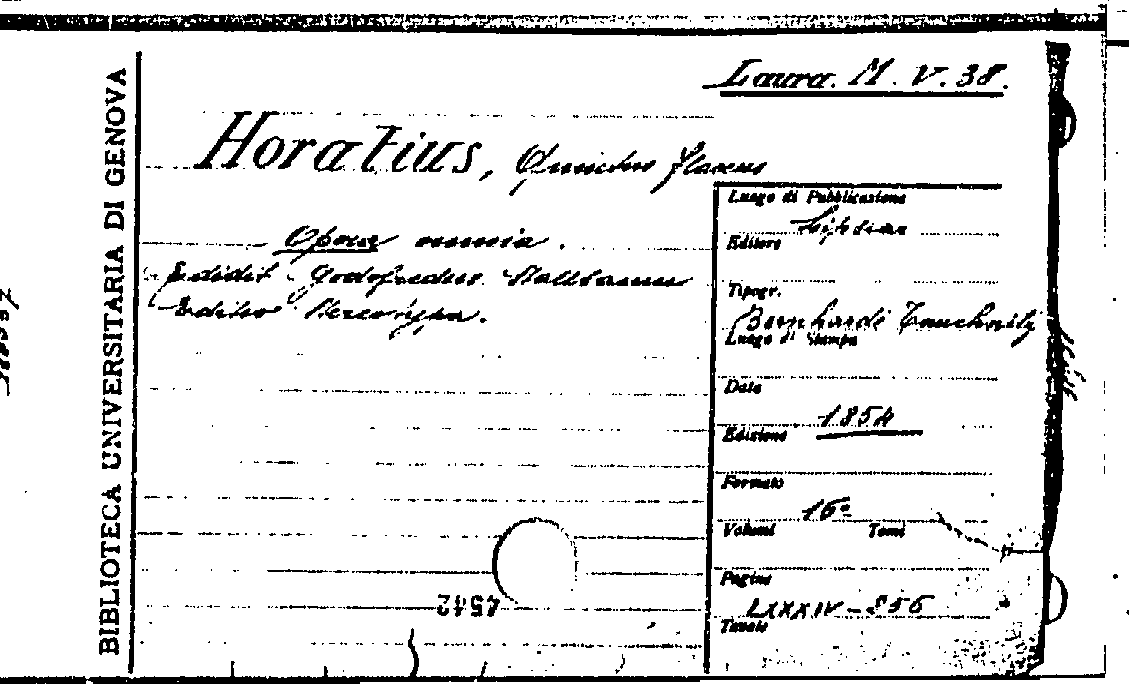 BIBLIOTECA UNIVERSITARIA DI GENOVA
Laura. M. V. 38.
Horatius, Quinctus Flaccus
Opera omnia.
Edidit Godofredus Stallbaum
Editio Stereotypa.
Luogo di Pubblicazione
Lipsiae
Editore
Tipogr.
Bernhardi Tauchnitz
Luogo di Stampa
Data
1854
Edizione
Formato
16°
Volumi Tomi
Pagine
LXXXIV-
Tavole
4542